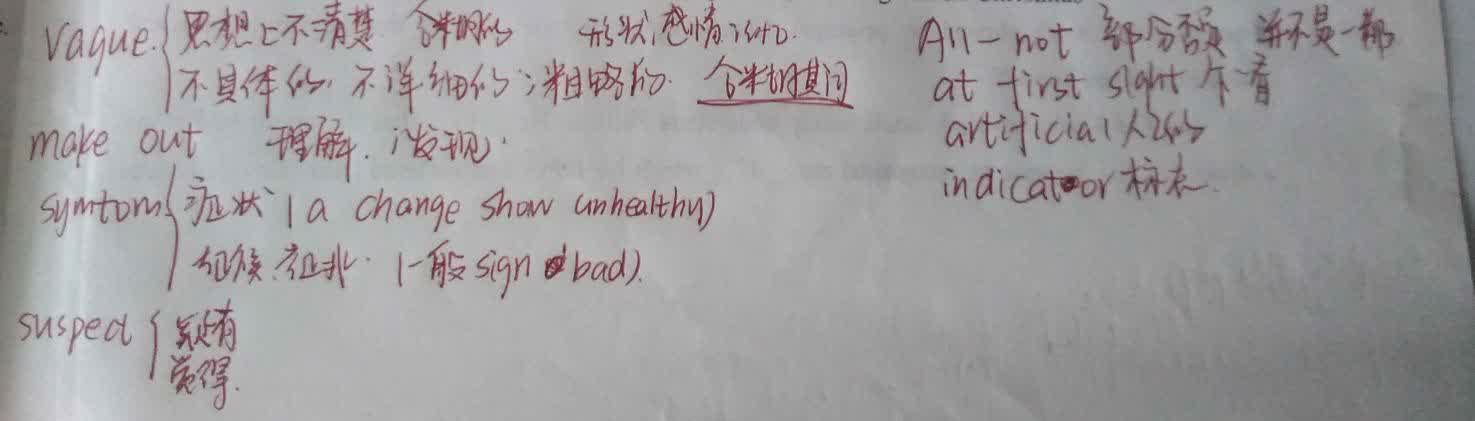 vague { 思想上不清楚 含糊的 形状,感情
不具体的,不详细的;粗略的. 含糊其词
make out 理解. 发现.
symtom { 症状 (a change show unhealthy)
征候.征兆. (一般sign bad).
suspect {
觉得.
All-not 部分否定 并不是一都
at first sight 乍一看
artificial 人造的
indicator 标志